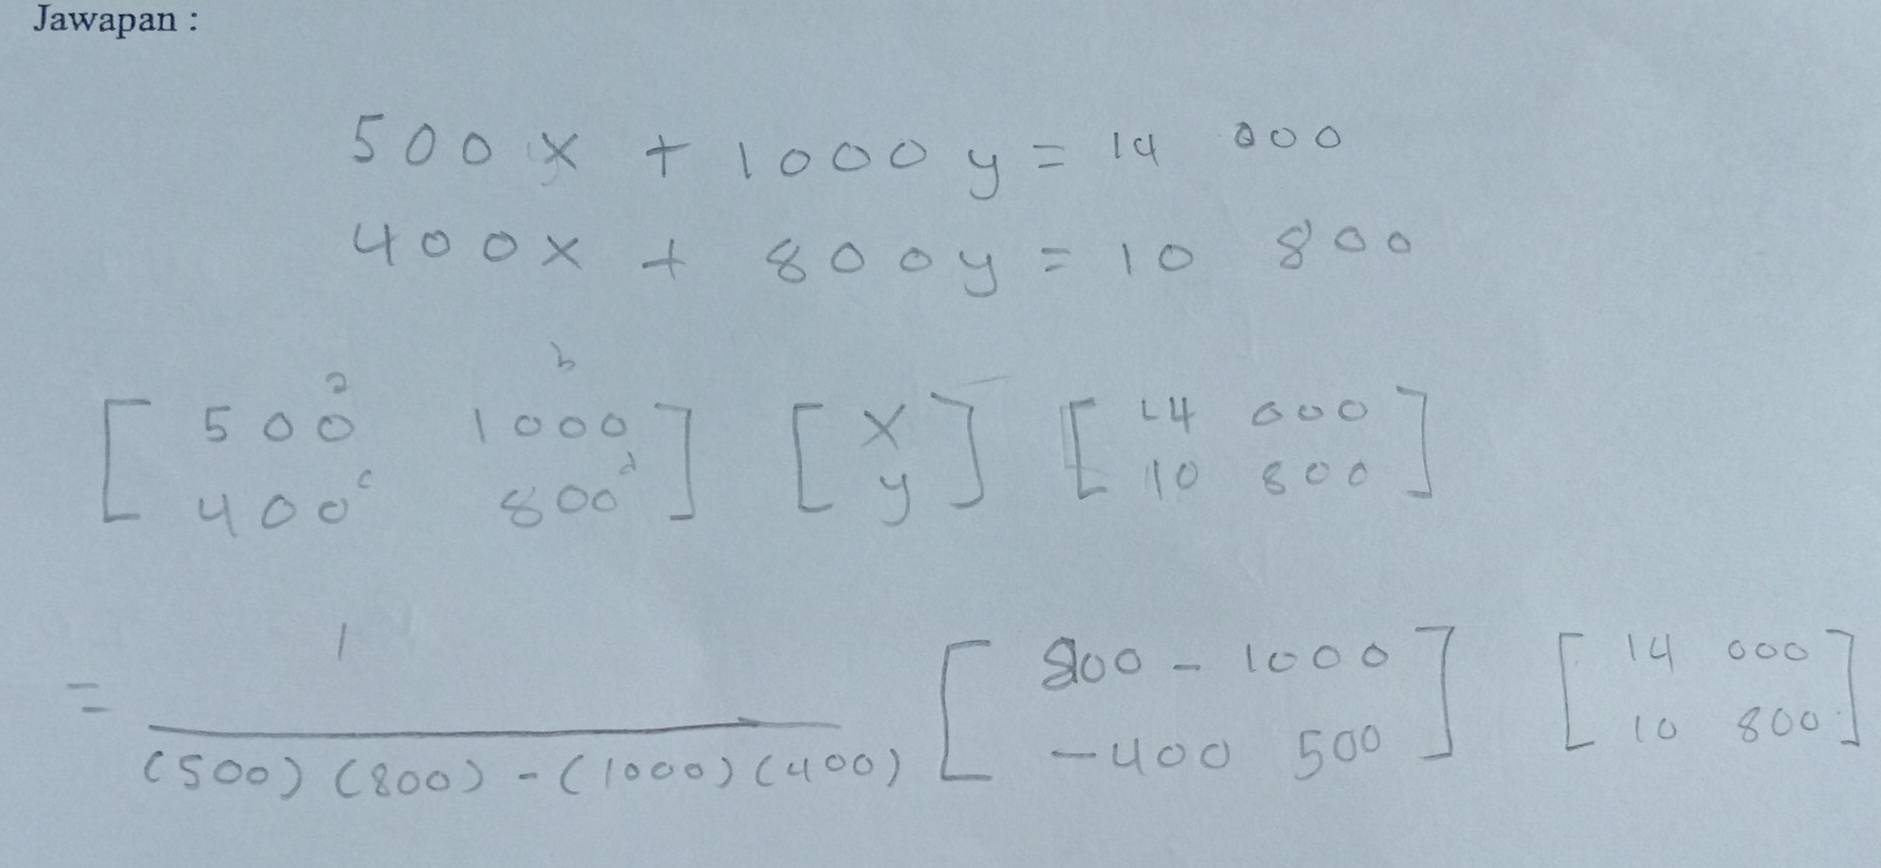 Jawapan :
500x + 1000y = 14 000
400x + 800y = 10 800
[ 500ᵃ 1000ᵇ ] [ x ] [ 14 000 ]
[ 400ᶜ 800ᵈ ] [ y ] [ 10 800 ]
1
= ———————— [ 800 - 1000 ] [ 14 000 ]
(500) (800) - (1000) (400) [ -400 500 ] [ 10 800 ]